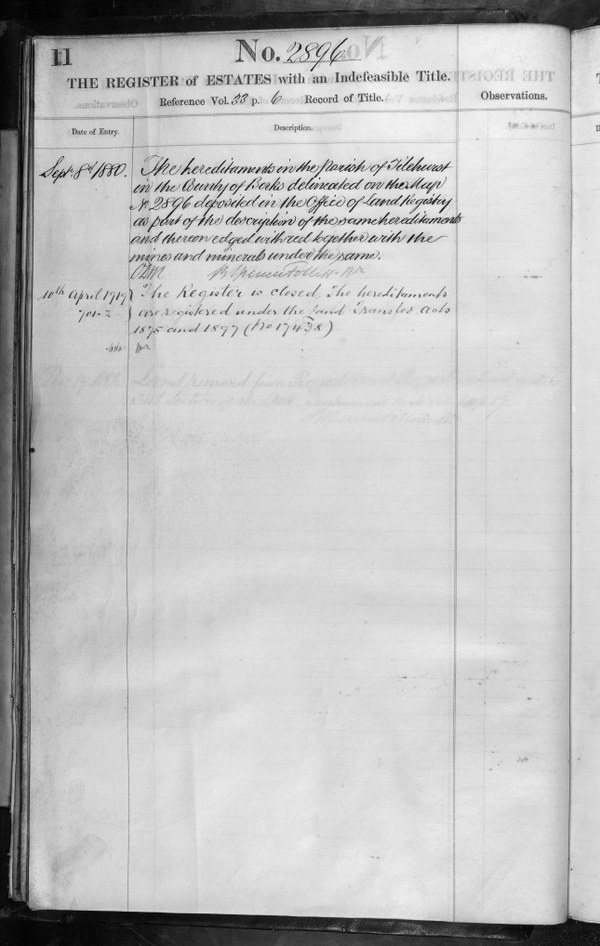 11
No. 2896
THE REGISTER of ESTATES with an Indefeasible Title.
Reference Vol. 33 p. 6 Record of Title.
Observations.
Date of Entry.
Description.
Septr. 8th 1880.
The hereditaments in the Parish of Tilehurst
in the County of Berks delineated on the Map
No. 2896 deposited in the Office of Land Registry
as part of the description of the same hereditaments
and thereon edged with red together with the
mines and minerals under the same.
10th April 1919
The Register is closed, The hereditaments
are registered under the Land Transfer Acts
1875 and 1897 (No 17438)
Land removed from